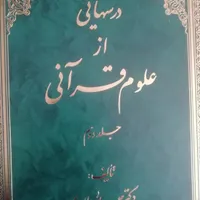 درسهایی
از
علوم قرآنی
جلد دوم
تألیف:
دکتر